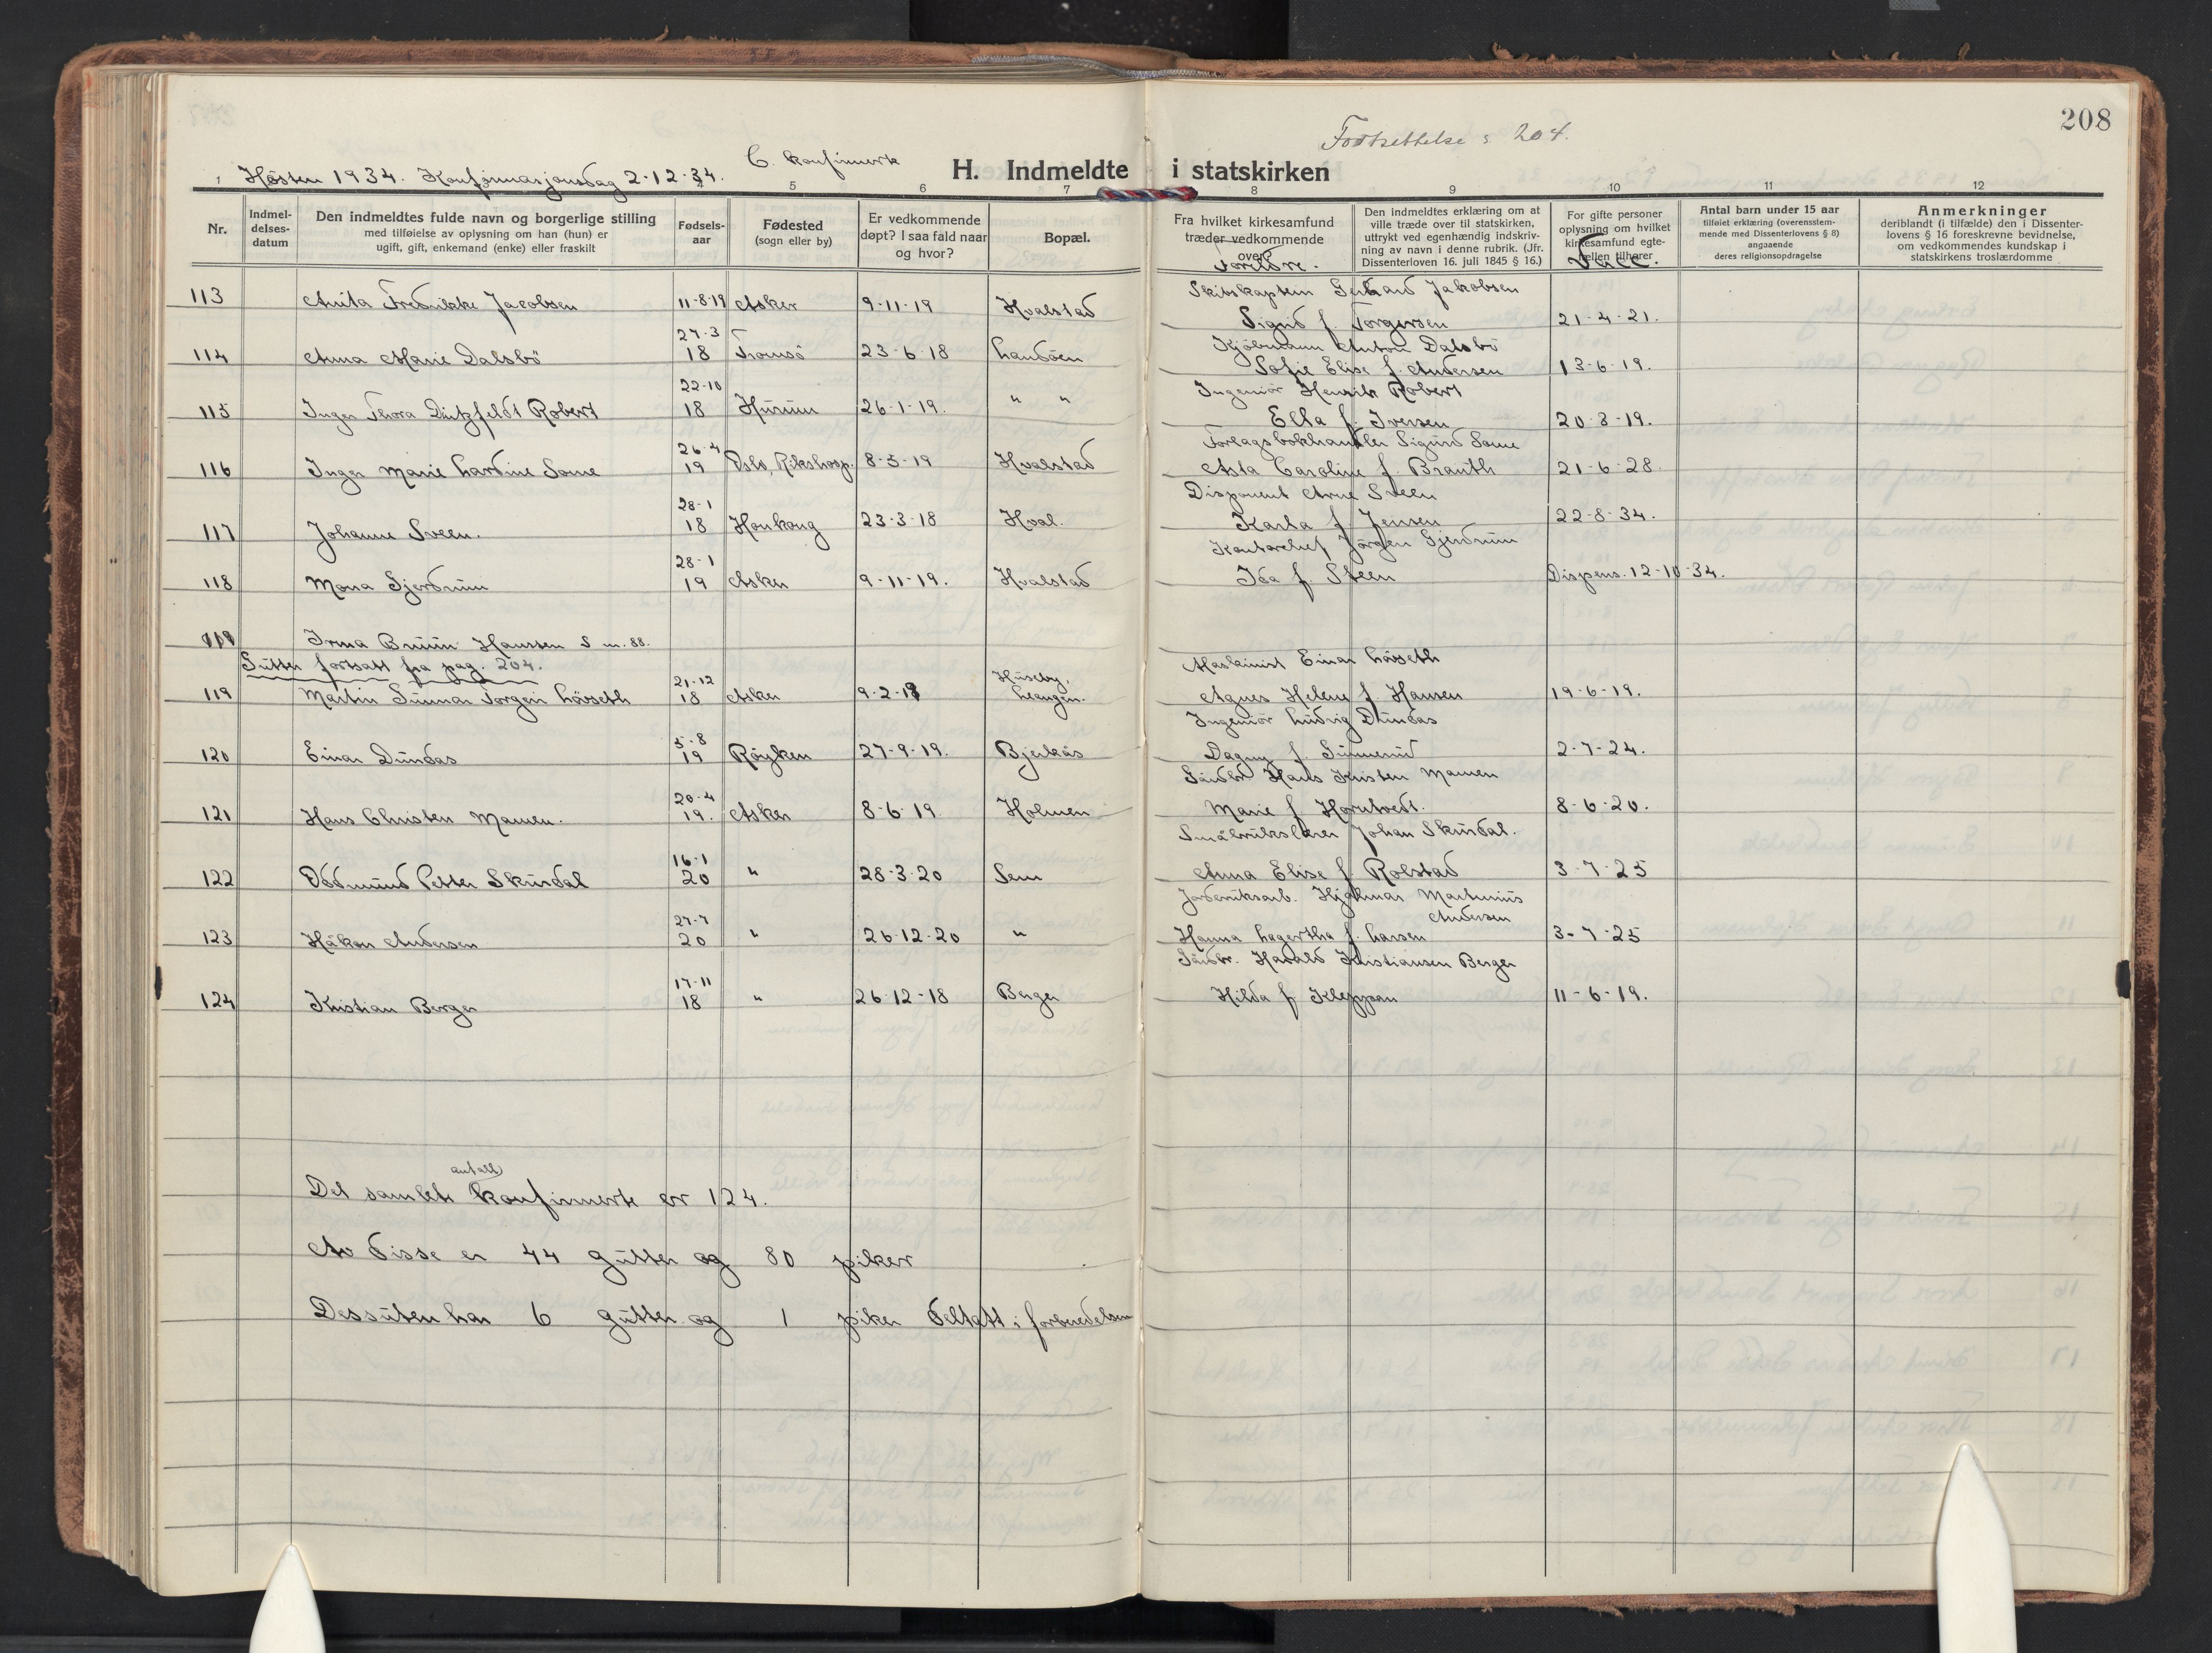 208
Fortsettelse s 204.
C. konfirmerte
Høsten 1934. Konfirmasjonsdag 2-12-34.
H. Indmeldte i statskirken
5 6 7 8 9 10 11 12
Nr.
Indmeldelsesdatum
Den indmeldtes fulde navn og borgerlige stilling
med tilføielse av oplysning om han (hun) er
ugift, gift, enkemand (enke) eller fraskilt
Fødselsaar
Fødested
(sogn eller by)
Er vedkommende
døpt? I saa fald naar
og hvor?
Bopæl.
Fra hvilket kirkesamfund
træder vedkommende
over?
Foreldre.
Den indmeldtes erklæring om at
ville træde over til statskirken,
uttrykt ved egenhændig indskrivning av navn i denne rubrik. (Jfr.
Dissenterloven 16. juli 1845 § 16.)
For gifte personer
oplysning om hvilket
kirkesamfund egtefællen tilhører
Vacc.
Antal barn under 15 aar
tilføiet erklæring (overensstemmende med Dissenterlovens § 8)
angaaende
deres religionsopdragelse
Anmerkninger
deriblandt (i tilfælde) den i Dissenterlovens § 16 foreskrevne bevidnelse,
om vedkommendes kundskap i
statskirkens troslærdomme
Skibskaptein Gerhard Jakobsen
113 Anita Fredrikke Jacobsen 11-8-19 Asker 9-11-19 Hvalstad Sigrid f. Torgersen 21-4-21.
27-3 Kjøbmann Anton Dalsbö
114 Anna Marie Dalsbö 18 Tromsö 23-6-18 Landöen Sofie Elise f. Andersen 13-6-19.
22-10 Ingeniör Henrik Robert
115 Inger Thora Ditzfeldt Robert 18 Hurum 26-1-19. " " Ella f. Iversen 20-3-19.
26-4 Forlagsbokhandler Sigurd Some
116 Inger Marie Lardine Some 19 Oslo, Rikshosp. 8-5-19 Hvalstad Asta Caroline f. Branth 21-6-28
28-1 Disponent Arne Sveen
117 Johanne Sveen. 18 Honkong 23-3-18 Hval. Karla f. Jensen 22-8-34.
28-1 Kontorchef Jörgen Gjerdrum
118 Mona Gjerdrum 19 Asker 9-11-19. Hvalstad Ida f. Steen Dispens. 12-10-34.
119 Irma Bruun Hanssen S nr. 88.
Gutter fortsatt fra pag. 204.
21-12 Huseby, Maskinist Einar Lövseth
119 Martin Gunnar Torgeir Lövseth 18 Asker 9-2-19 Leangen. Agnes Helene f. Hansen 19-6-19.
5-8 Ingeniör Ludvig Dundas
120 Einar Dundas 19 Röyken 27-9-19. Bjerkås Dagny f. Gunnerud 2-7-24.
20-4 Gårdbr. Hans Kristen Mamen
121 Hans Christen Mamen. 19. Asker 8-6-19. Holmen Marie f. Horntvedt. 8-6-20.
16-1 Småbrukslærer Johan Skurdal.
122 Oddmund Petter Skurdal 20 " 28-3-20 Sem Anna Elise f. Rolstad 3-7-25
27-7 Jordbruksarb. Hjalmar Martinius Andersen
123 Håkon Andersen 20 " 26-12-20 " Hanna Lagertha f. Larsen 3-7-25
17-11 Gårdbr. Harald Kristiansen Berger
124 Kristian Berger 18 " 26-12-18 Berger Hilda f. Kleppan 11-6-19.
antall
Det samlete konfirmerte er 124.
Av disse er 44 gutter og 80 piker
Dessuten har 6 gutter og 1 piker deltatt i forberedelsen